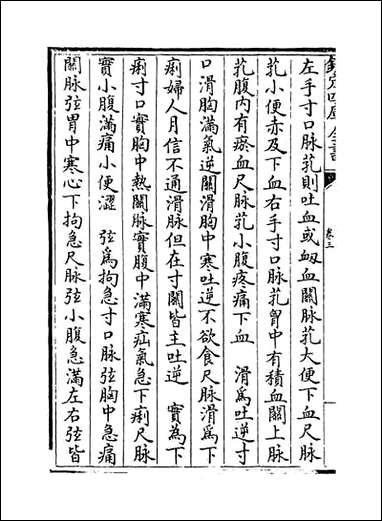 欽定四庫全書
卷三
左手寸口脉芤則吐血或衂血關脉芤大便下血尺脉
芤小便赤及下血右手寸口脉芤胷中有積血關上脉
芤腹内有瘀血尺脉芤小腹疼痛下血　滑為吐逆寸
口滑胸滿氣逆關滑胸中寒吐逆不欲食尺脉滑為下
痢婦人月信不通滑脉但在寸關皆主吐逆　實為下
痢寸口實胸中熱關脉實腹中滿寒疝氣急下痢尺脉
實小腹滿痛小便澀　弦為拘急寸口脉弦胸中急痛
關脉弦胃中寒心下拘急尺脉弦小腹急滿左右弦皆